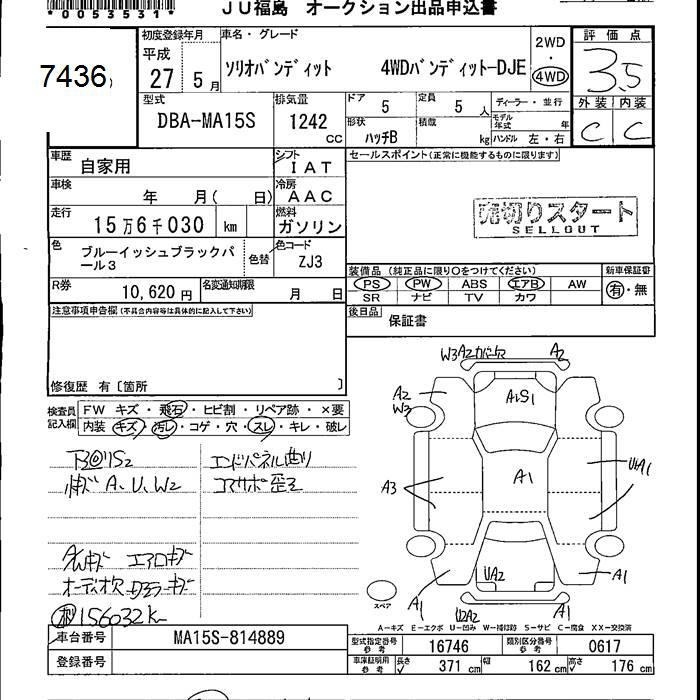 *0053531*
JU福島 オークション出品申込書
7436
初度登録年月
平成
27 5月
車名・グレード
ソリオバンディット 4WDバンディット-DJE
2WD
・
4WD
評価点
3.5
外装 内装
C C
型式
DBA-MA15S
排気量
1242
cc
ドア
5
定員
5 人
形状
ハッチB
積載
kg
ディーラー・並行
モデル
年式 年
ハンドル 左・右
車歴
自家用
シフト
IAT
車検
年 月( 日)
冷房
AAC
走行
15万6千030 km
燃料
ガソリン
色
ブルーイッシュブラックパ
ール3
色替
色コード
ZJ3
R券
10,620円
名変通知期限
月 日
セールスポイント(正常に機能するものに限ります)
売切りスタート
SELLOUT
装備品(純正品に限り○をつけてください)
PS PW ABS エアB AW
SR ナビ TV カワ
新車保証書
有・無
後日品
保証書
注意事項申告欄(不具合内容等は具体的に記入して下さい)
修復歴 有〔箇所 〕
検査員
記入欄
FW キズ・飛石・ヒビ割・リペア跡・×要
内装 キズ・汚レ・コゲ・穴・スレ・キレ・破レ
エンドパネル曲り
コアサポ歪み
A、U、W2
156032K
W3A2カバー欠
A2
A2
W3
A1S1
A3
A1
UA1
UA2
A1
A1
U2A2
A1
スペア
A-キズ E-エクボ U-凹み W-補修跡 S-サビ C-腐食 XX-交換済
車台番号
MA15S-814889
登録番号
型式指定番号
参考
16746
類別区分番号
参考
0617
車庫証明用
参考
長さ
371 cm
幅
162 cm
高さ
176 cm